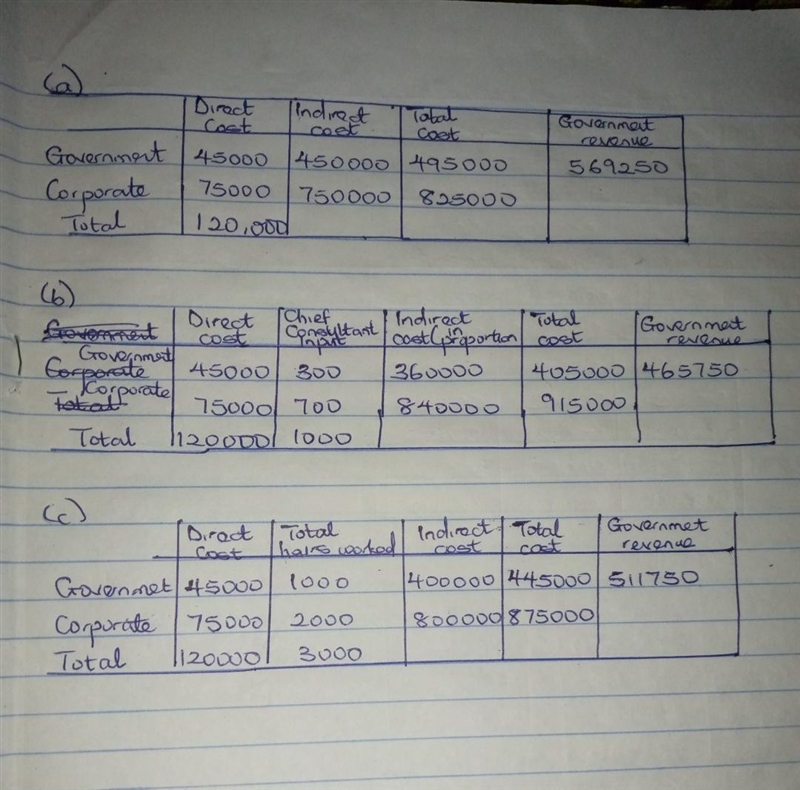 (a)
Direct Cost Indirect cost Total cost Government revenue
Government 45000 450000 495000 569250
Corporate 75000 750000 825000
Total 120,000
(b)
Government Direct cost Chief Consultant input Indirect cost (in proportion Total cost Governmet revenue
Government
Corporate 45000 300 360000 405000 465750
Corporate
Total 75000 700 840000 915000
Total 120000 1000
(c)
Direct Cost Total hours worked Indirect cost Total cost Governmet revenue
Governmet 45000 1000 400000 445000 511750
Corporate 75000 2000 800000 875000
Total 120000 3000